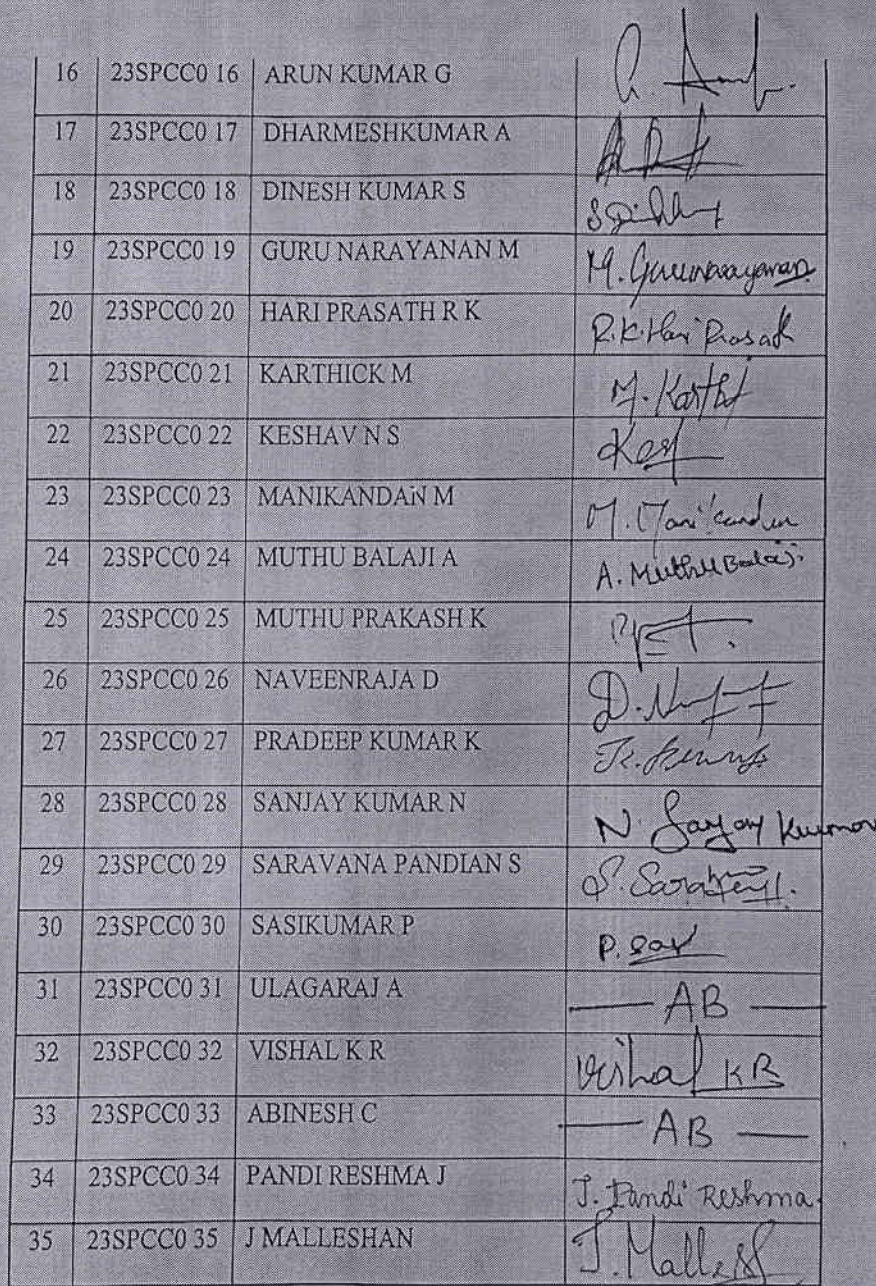 16 23SPCC0 16 ARUN KUMAR G
17 23SPCC0 17 DHARMESHKUMAR A
18 23SPCC0 18 DINESH KUMAR S
19 23SPCC0 19 GURU NARAYANAN M M. Gurunarayanan
20 23SPCC0 20 HARI PRASATH R K R.K.Hari Prasath
21 23SPCC0 21 KARTHICK M M. Karthi
22 23SPCC0 22 KESHAV N S
23 23SPCC0 23 MANIKANDAN M M. Manikandan
24 23SPCC0 24 MUTHU BALAJI A A. Muthu Balaji
25 23SPCC0 25 MUTHU PRAKASH K
26 23SPCC0 26 NAVEENRAJA D
27 23SPCC0 27 PRADEEP KUMAR K
28 23SPCC0 28 SANJAY KUMAR N N. Sanjay Kumar
29 23SPCC0 29 SARAVANA PANDIAN S
30 23SPCC0 30 SASIKUMAR P
31 23SPCC0 31 ULAGARAJ A — AB —
32 23SPCC0 32 VISHAL K R Vishal KR
33 23SPCC0 33 ABINESH C — AB —
34 23SPCC0 34 PANDI RESHMA J J. Pandi Reshma.
35 23SPCC0 35 J MALLESHAN